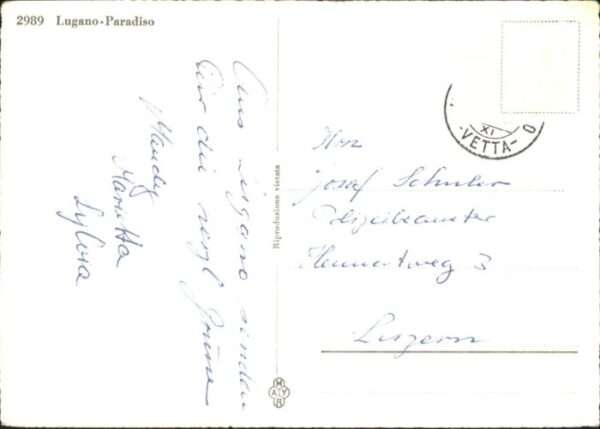 2989 Lugano-Paradiso
Aus Lugano senden
wir die herzl. Grüsse
Mariotta
Sylvia
Riproduzione vietata
XI
-VETTA-
Hrn
Josef Schuler
Polizeibeamter
3
Luzern
MAYR